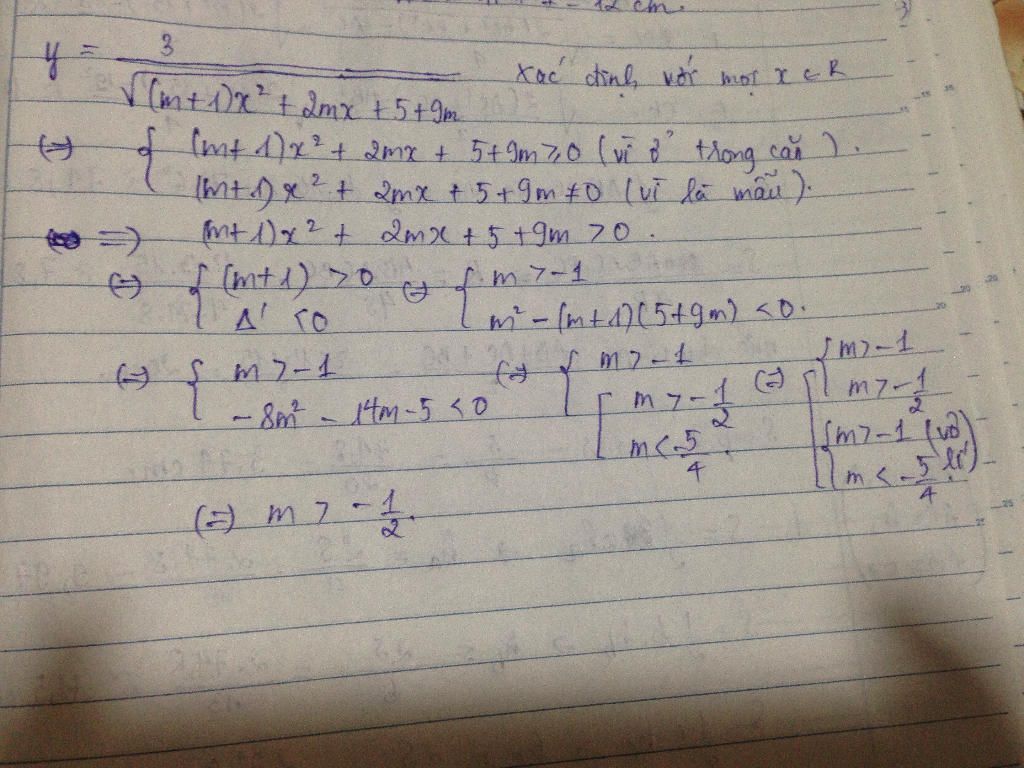 12 cm.
y = 3 / √(m+1)x² + 2mx + 5+9m xác định với mọi x ∈ R
(=) { (m+1)x² + 2mx + 5+9m ≥ 0 (vì ở trong căn).
(m+1)x² + 2mx + 5+9m ≠ 0 (vì là mẫu).
=) (m+1)x² + 2mx + 5+9m > 0.
(=) { (m+1) > 0 (=) { m > -1
Δ' < 0 m² - (m+1)(5+9m) < 0.
(=) { m > -1 (=) { m > -1 (=) [ { m > -1
-8m² - 14m - 5 < 0 [ m > -1/2 m > -1/2
m < -5/4. { m > -1 (vô lí)
m < -5/4.
(=) m > -1/2.